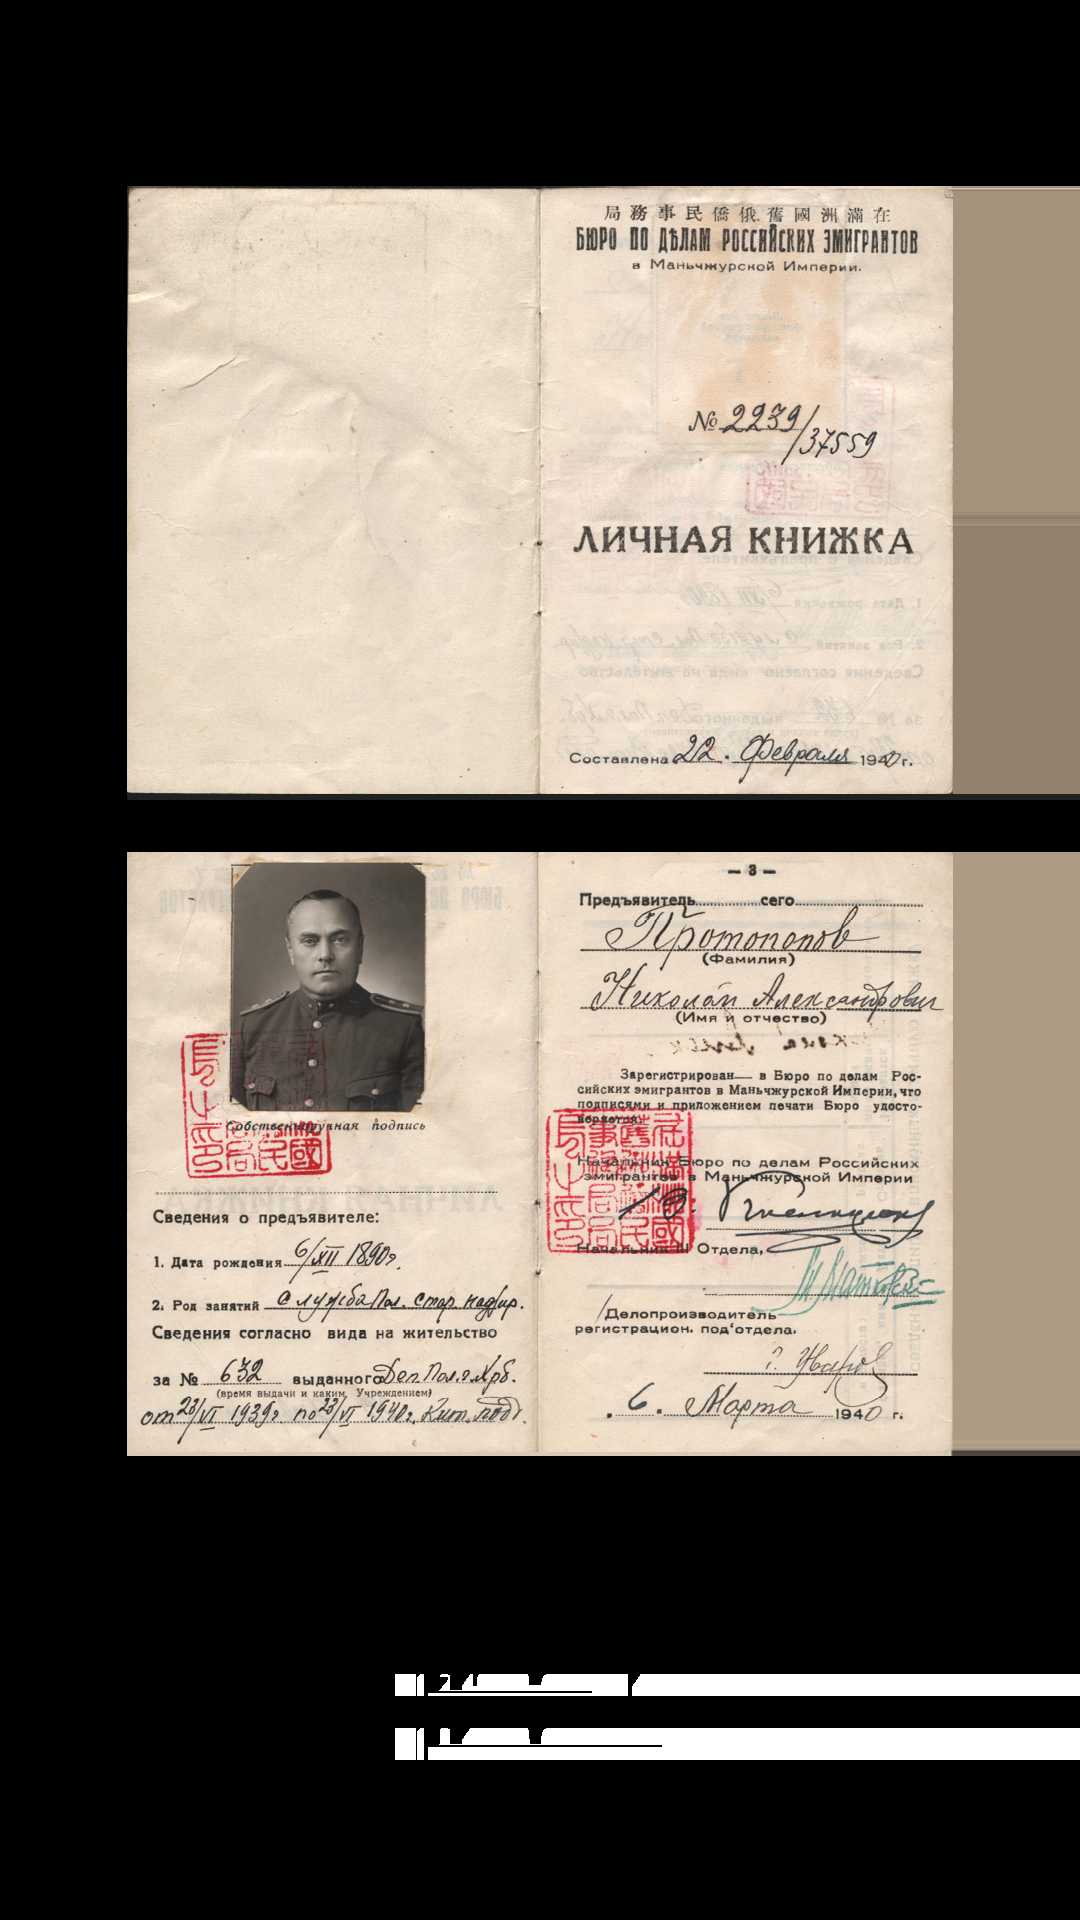 局務事民僑俄舊國洲滿在
БЮРО ПО ДѢЛАМ РОССІЙСКИХ ЭМИГРАНТОВ
в Маньчжурской Империи.
№ 2239/37559
ЛИЧНАЯ КНИЖКА
Составлена 22. Февраля 1940 г.
Собственноручная подпись
Сведения о предъявителе:
1. Дата рождения 6/XII 1890 г.
2. Род занятий Служба Пол. стар. надзир.
Сведения согласно вида на жительство
за № 632 выданного Деп. Пол. г. Хрб.
(время выдачи и каким, Учреждением)
от 23/VI 1939 г по 23/VI 1940 г. Кит. подд.
— 3 —
Предъявитель сего
Протопопов
(Фамилия)
Николай Александрович
(Имя и отчество)
Зарегистрирован— в Бюро по делам Рос-
сийских эмигрантов в Маньчжурской Империи, что
подписями и приложением печати Бюро удосто-
веряется.
Начальник Бюро по делам Российских
эмигрантов в Маньчжурской Империи
Начальник III Отдела,
М Матковский
Делопроизводитель
регистрацион. под'отдела.
6. Марта 1940 г.